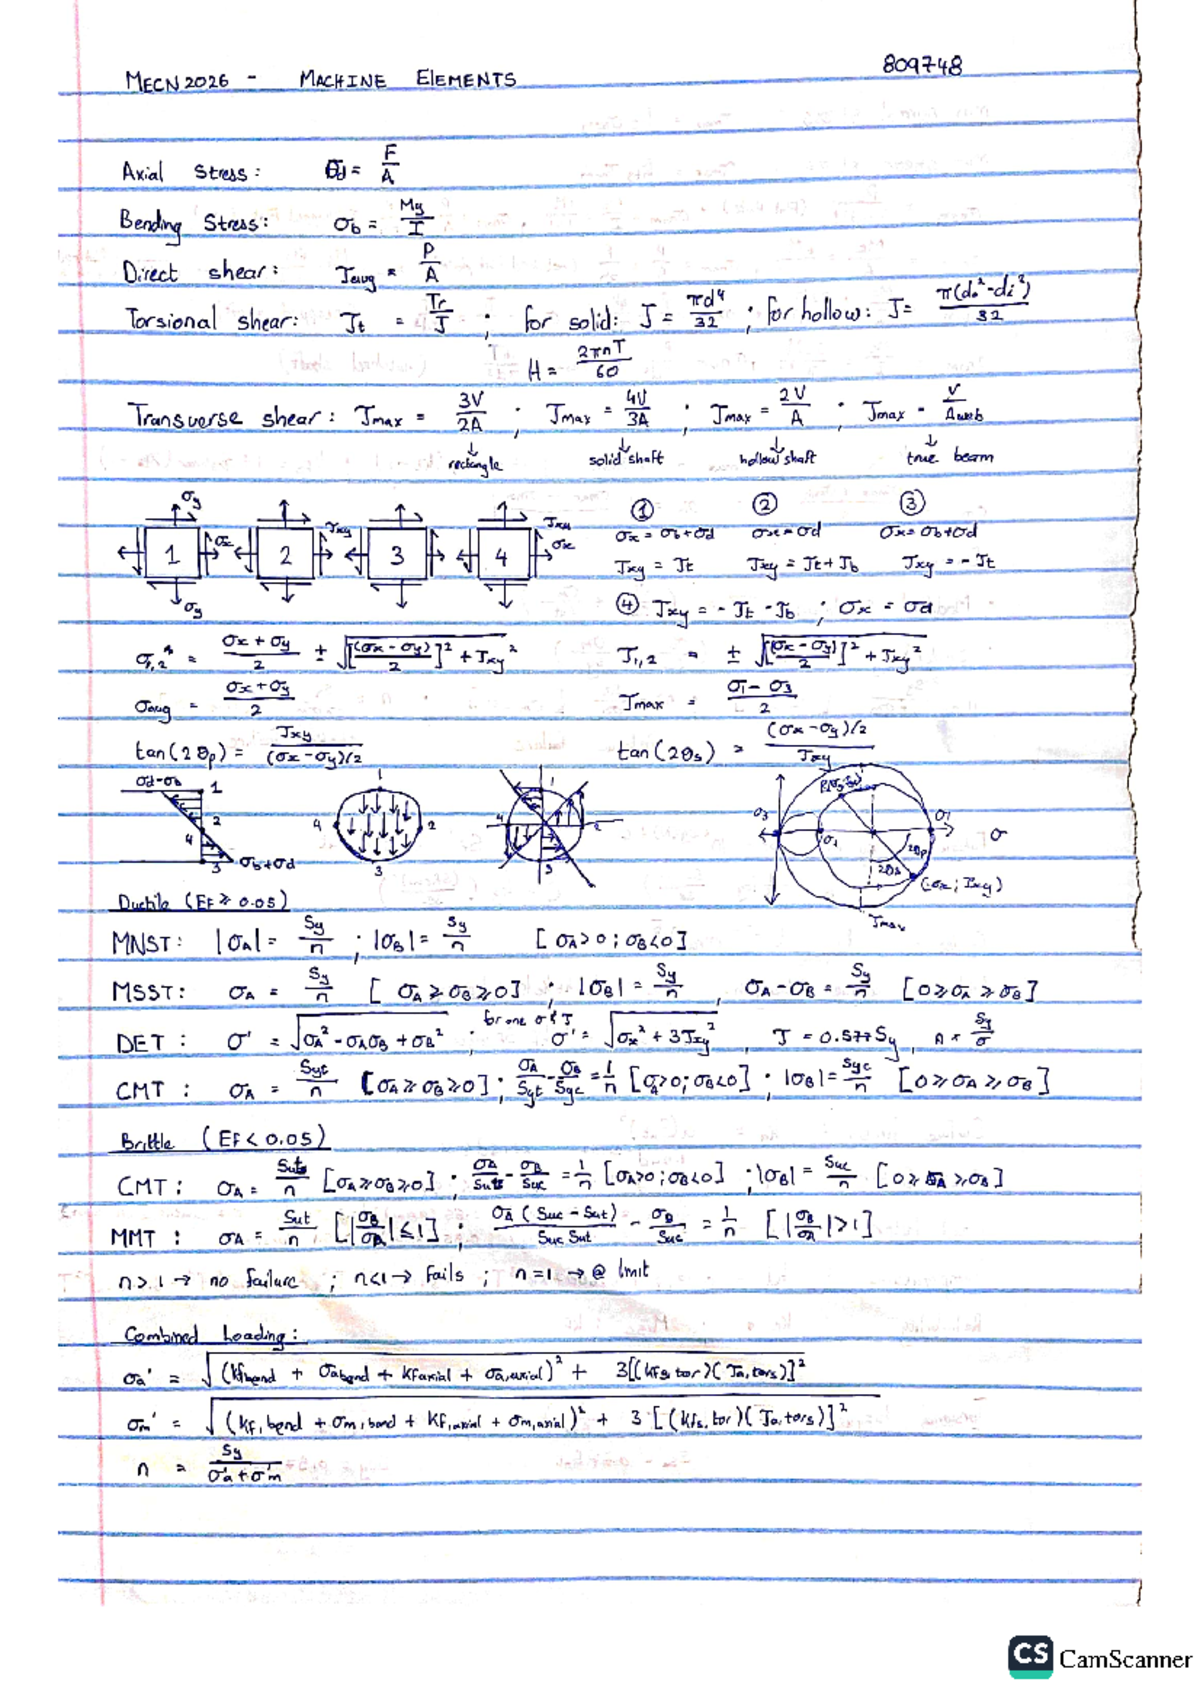 MECN2026 - MACHINE ELEMENTS 809748
Axial Stress: σd = F/A
Bending Stress: σb = My/I
Direct shear: Tavg = P/A
Torsional shear: Tt = Tr/J ; for solid: J = πd⁴/32 ; for hollow: J = π(do²-di²)/32
H = 2πnT/60
Transverse shear: Tmax = 3V/2A ; Tmax = 4V/3A ; Tmax = 2V/A ; Tmax = V/Aweb
↓ rectangle ↓ solid shaft ↓ hollow shaft ↓ true beam
σy ① ② ③
1 σx 2 Txy 3 4 Txy σx σx = σb+σd σx = σd σx = σb+σd
Txy = Tt Txy = Tt+Tb Txy = -Tt
σy ④ Txy = -Tt -Tb ; σx = σd
σ1,2 = (σx+σy)/2 ± √([(σx-σy)/2]²+Txy²) T1,2 = ± √([(σx-σy)/2]²+Txy²)
σavg = (σx+σy)/2 Tmax = (σ1-σ3)/2
tan(2θp) = Txy/((σx-σy)/2) tan(2θs) = ((σx-σy)/2)/Txy
σd-σb 1 2 4 3 σb+σd
1 4 2 3
1 4 2 3
σ3 σ1 σ 2θp 2θs (σx; Txy) Tmax
Ductile (Ef ≥ 0.05)
MNST: |σA| = Sy/n ; |σB| = Sy/n [σA>0 ; σB<0]
MSST: σA = Sy/n [σA ≥ σB ≥ 0] ; |σB| = Sy/n , σA-σB = Sy/n [0 ≥ σA ≥ σB]
DET: σ' = √(σA²-σAσB+σB²) ; for one σ & T σ' = √(σx²+3Txy²) T = 0.577Sy , n = Sy/σ
CMT: σA = Syt/n [σA ≥ σB ≥ 0] ; σA/Syt - σB/Syc = 1/n [σA>0 ; σB<0] ; |σB| = Syc/n [0 ≥ σA ≥ σB]
Brittle (Ef < 0.05)
CMT: σA = Sut/n [σA ≥ σB ≥ 0] ; σA/Sut - σB/Suc = 1/n [σA>0 ; σB<0] ; |σB| = Suc/n [0 ≥ σA ≥ σB]
MMT: σA = Sut/n [|σB/σA| ≤ 1] ; σA(Suc-Sut)/SucSut - σB/Suc = 1/n [|σB/σA| > 1]
n > 1 → no failure ; n<1 → fails ; n = 1 → @ limit
Combined Loading:
σa' = √((kf,bend + σa,bend + kf,axial + σa,axial)² + 3[(kfs,tor)(Ta,tors)]²)
σm' = √((kf,bend + σm,bend + kf,axial + σm,axial)² + 3[(kfs,tor)(Ta,tors)]²)
n = Sy/(σ'a+σ'm)
CS CamScanner